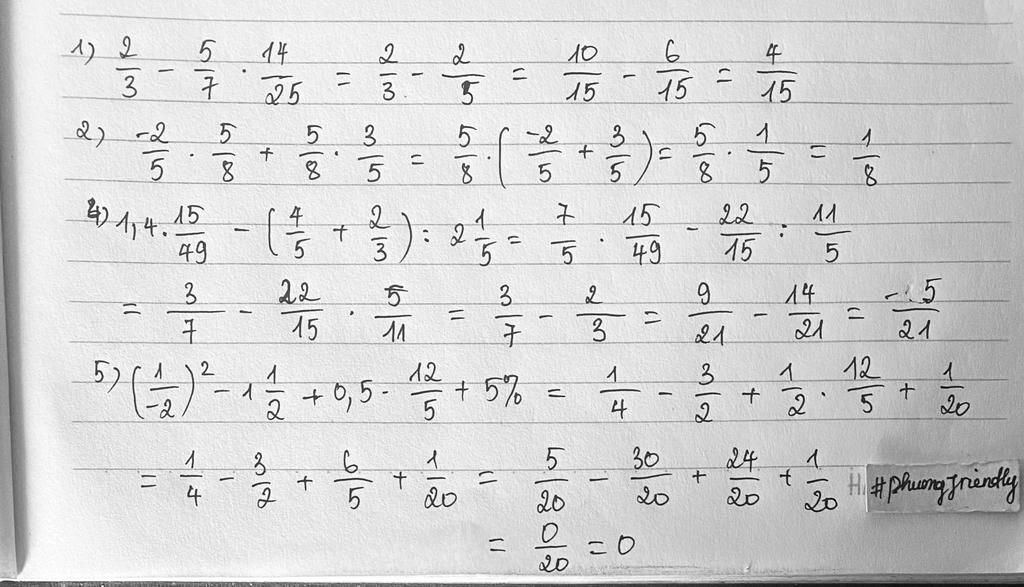 1) 2/3 - 5/7 . 14/25 = 2/3 - 2/5 = 10/15 - 6/15 = 4/15
2) -2/5 . 5/8 + 5/8 . 3/5 = 5/8 . ( -2/5 + 3/5 ) = 5/8 . 1/5 = 1/8
4) 1,4 . 15/49 - ( 4/5 + 2/3 ) : 2 1/5 = 7/5 . 15/49 - 22/15 : 11/5
= 3/7 - 22/15 . 5/11 = 3/7 - 2/3 = 9/21 - 14/21 = -5/21
5) ( 1/-2 )² - 1 1/2 + 0,5 . 12/5 + 5% = 1/4 - 3/2 + 1/2 . 12/5 + 1/20
= 1/4 - 3/2 + 6/5 + 1/20 = 5/20 - 30/20 + 24/20 + 1/20
#phuongfriendly
= 0/20 = 0